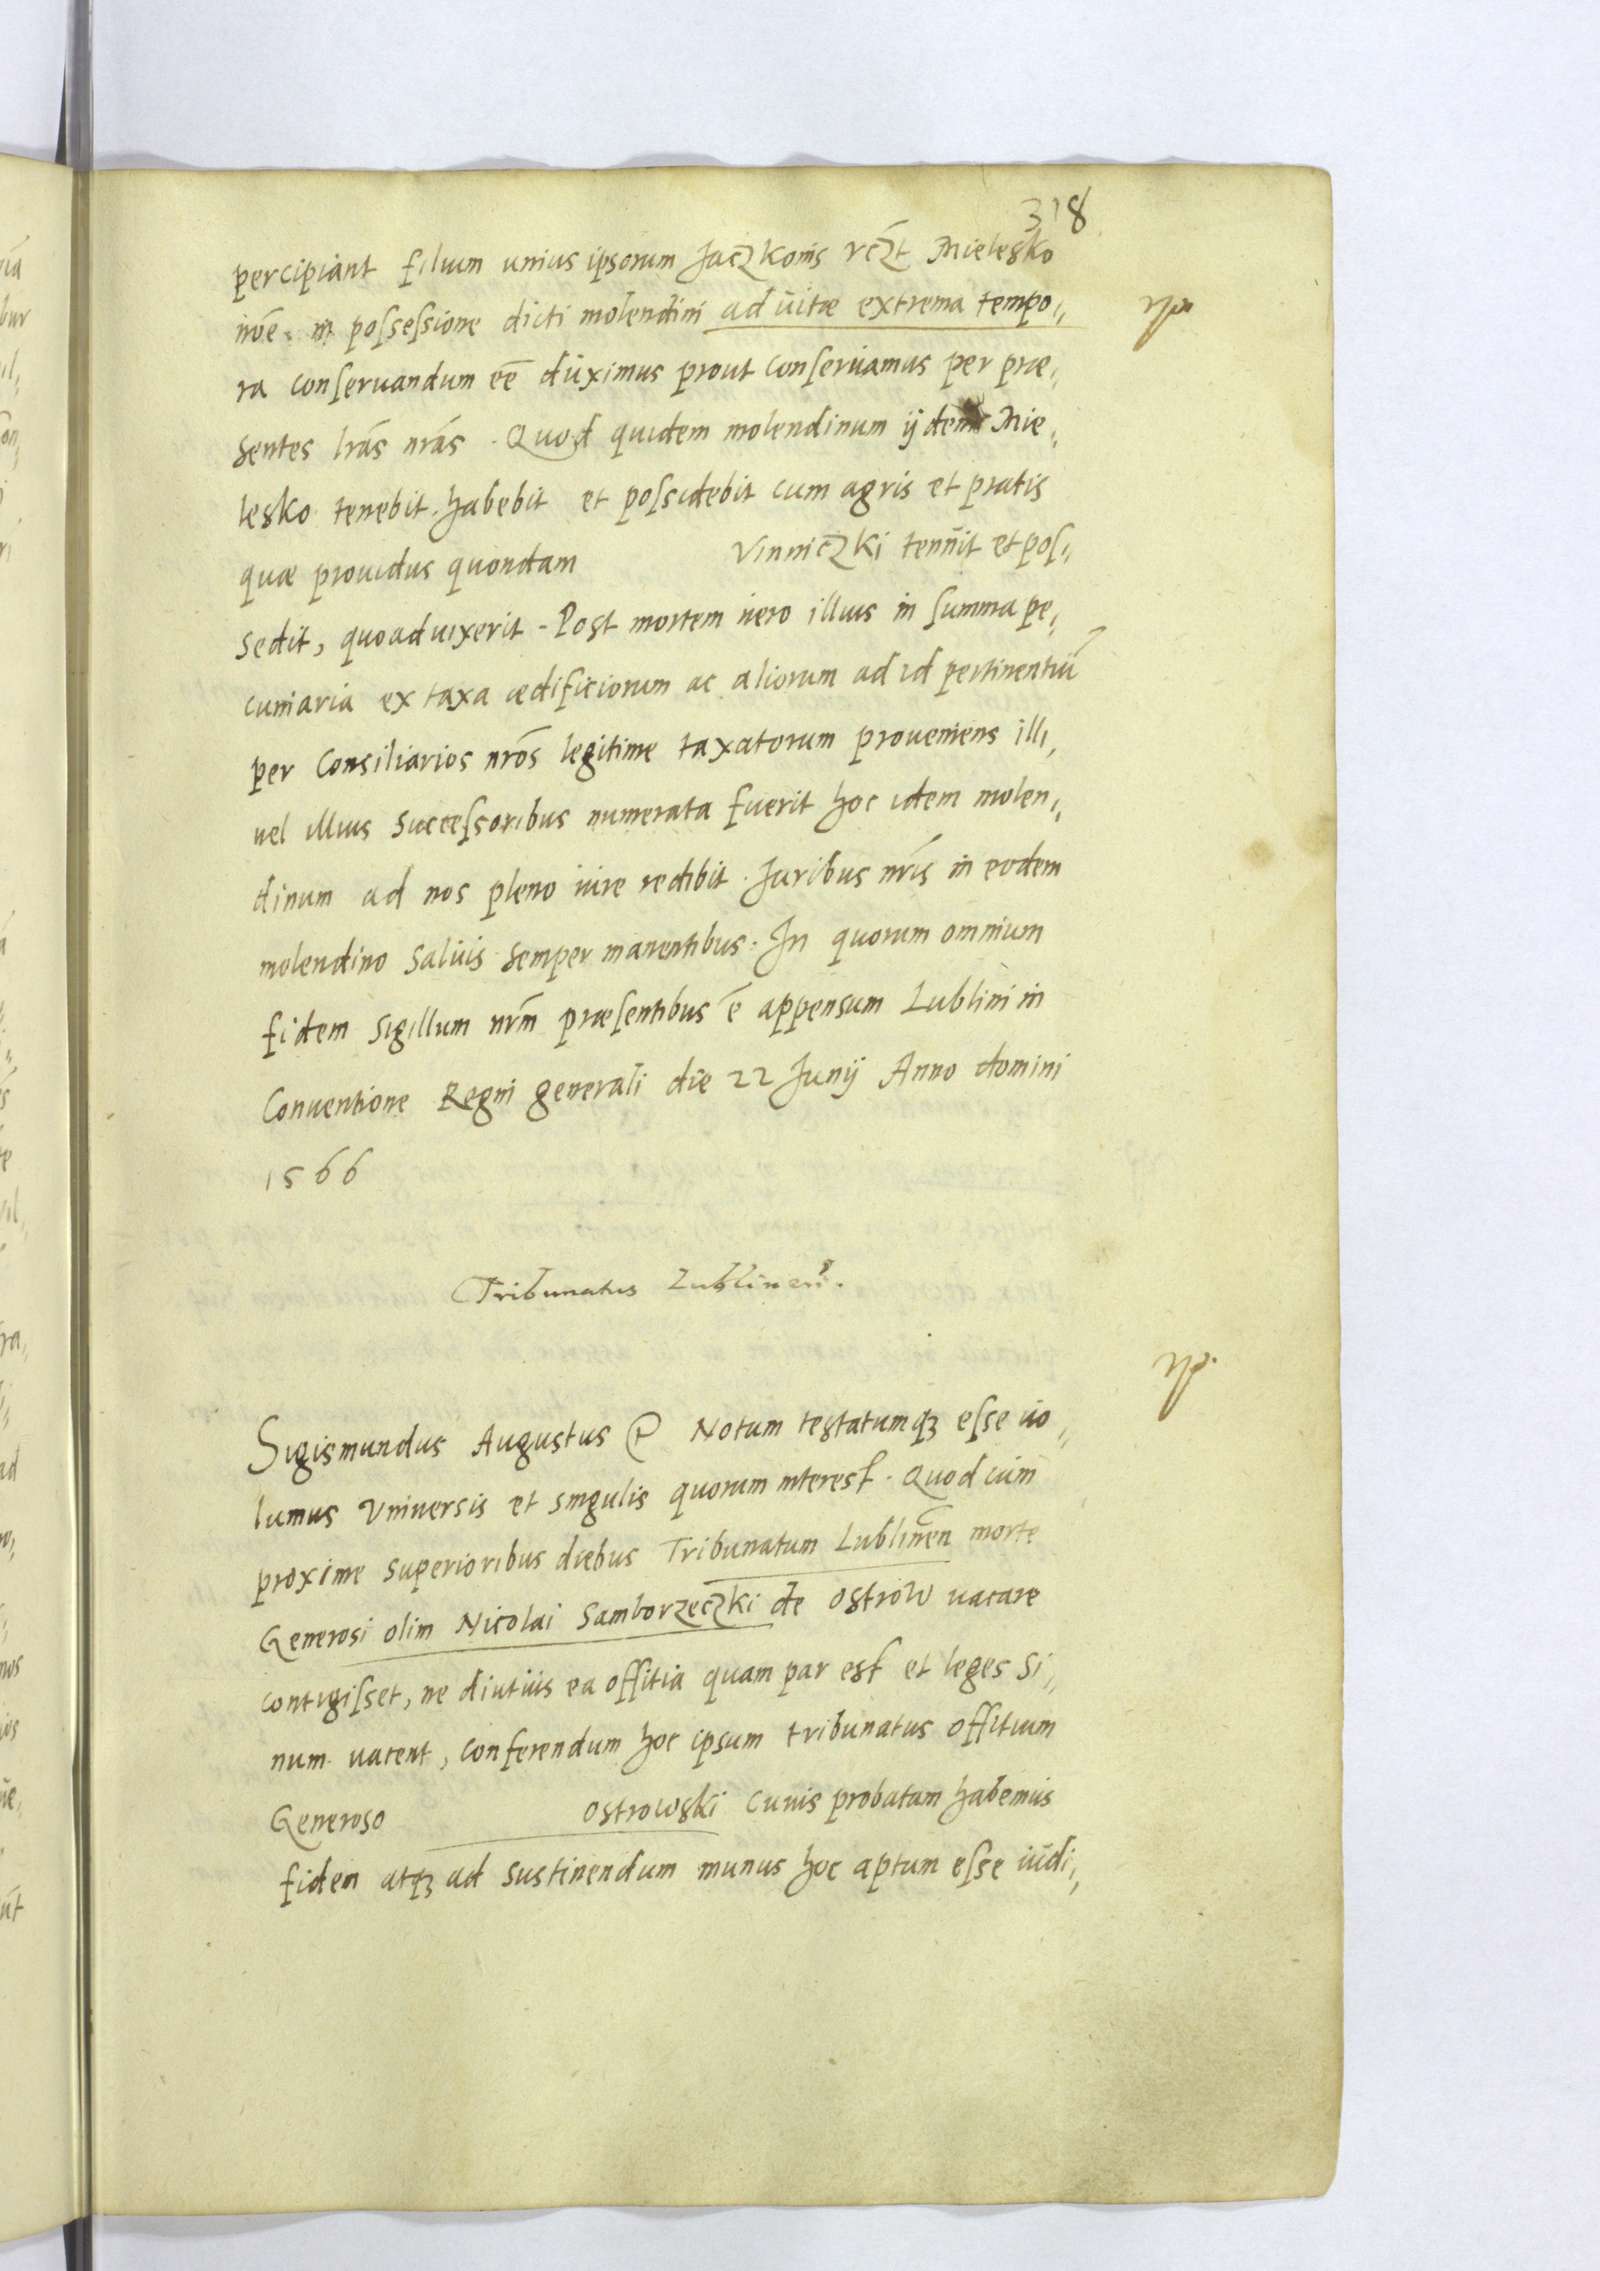 318
percipiant filium unius ipsorum Jaczkonis Mielesko
nōe. in possessione dicti molendini ad vitæ extrema tempo,,
ra conseruandum eē duximus prout conseruamus per præ,,
sentes lrās nrās. Quod quidem molendinum ijdem Mie,,
lesko tenebit. habebit et possidebit cum agris et pratis
quæ prouidus quondam Vinniczki tenuit et pos,,
sedit, quoad uixerit. Post mortem uero illius in summa pe,,
cuniaria ex taxa ædificiorum ac aliorum ad id pertinentiū
per Consiliarios nrōs legitime taxatorum proueniens illi,,
uel illius Successoribus numerata fuerit hoc idem molen,,
dinum ad nos pleno iure redibit. Juribus nrīs in eodem
molendino Saluis Semper manentibus. In quorum omnium
fidem Sigillum nrm̄ præsentibus ē appensum Lublini in
Conuentione Regni generali die 22 Junij Anno domini
1566
Tribunatus Lublinen̄.
Sigismundus Augustus Notum testatumqꝫ esse uo,,
lumus Vniuersis et singulis quorum interest. Quod cum
proxime Superioribus diebus Tribunatum Lublinēn morte
Generosi olim Nicolai Samborzeczki de Ostrow uacare
contigisset, ne diutius ea offitia quam par est et leges Si,,
num uacent, conferendum hoc ipsum tribunatus offitium
Generoso Ostrowski Cuius probatam habemus
fidem atqꝫ ad sustinendum munus hoc aptum esse iudi,,